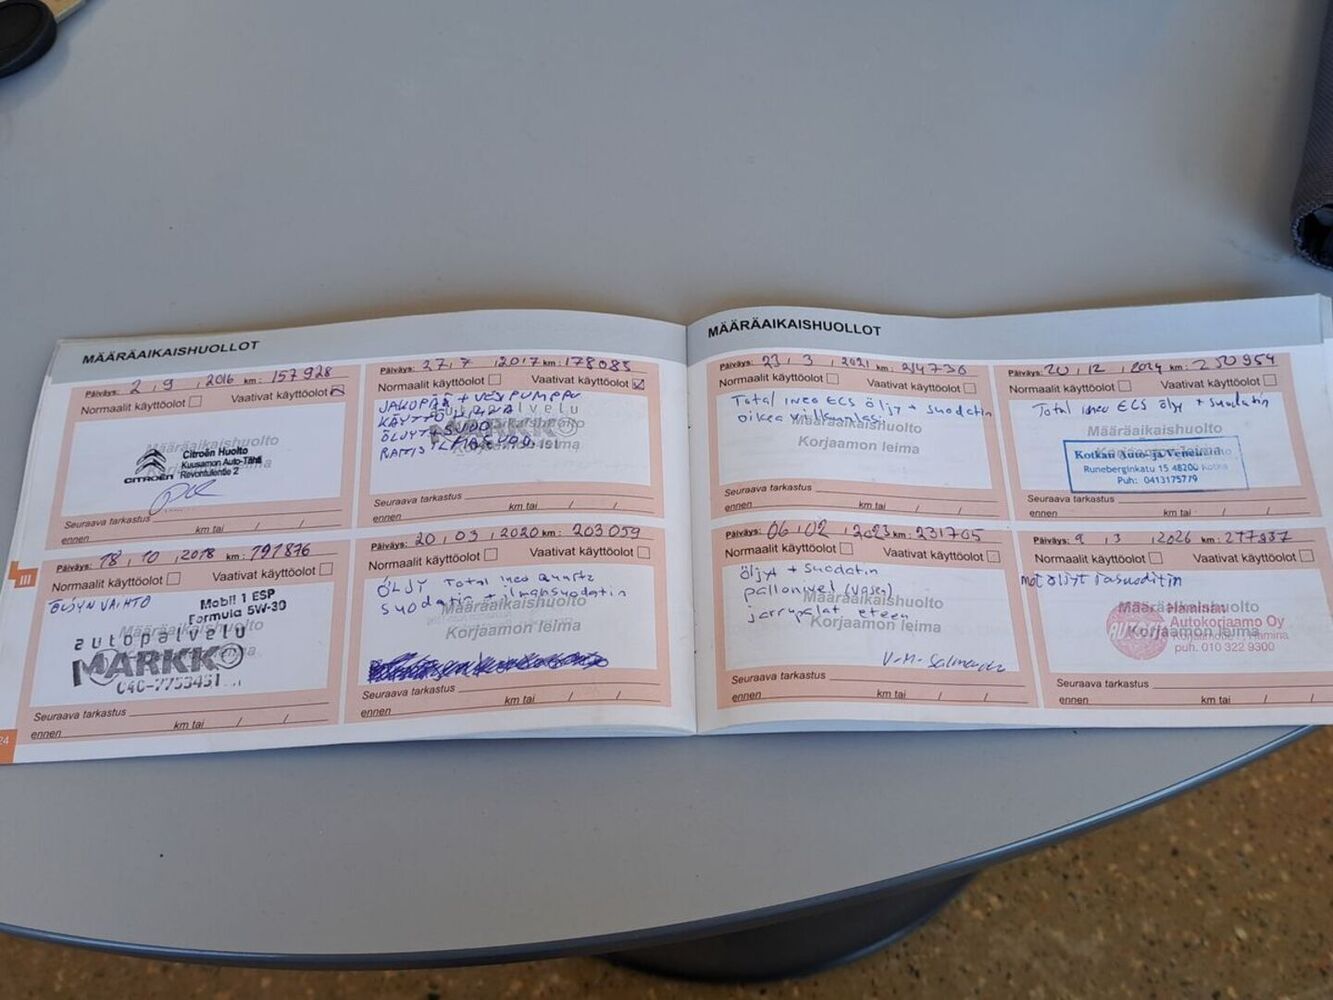 MÄÄRÄAIKAISHUOLLOT
Päiväys: 2 , 9 , 2016 km: 157928
Normaalit käyttöolot Vaativat käyttöolot
Määräaikaishuolto
Citroën Huolto
Kuusamon Auto-Tähti
Revontulentie 2
CITROËN
Seuraava tarkastus
ennen km tai / /
Päiväys: 27, 7 , 2017 km: 178085
Normaalit käyttöolot Vaativat käyttöolot
JAKOPÄÄ + VESIPUMPPU
KÄYTTÖHIHNA
autopalvelu
ÖLJYT + SUOD
MARKKO
RAITIS ILMASUOD.
Seuraava tarkastus
ennen km tai / /
III
Päiväys: 18, 10 , 2018 km: 191876
Normaalit käyttöolot Vaativat käyttöolot
ÖLJYN VAIHTO
Mobil 1 ESP
Formula 5W-30
Määräaikaishuolto
autopalvelu
MARKKO
040-7753451
Seuraava tarkastus
ennen km tai / /
24
Päiväys: 20 , 03 , 2020 km: 203059
Normaalit käyttöolot Vaativat käyttöolot
ÖLJY Total ineo quartz
suodatin + ilmansuodatin
Määräaikaishuolto
Korjaamon leima
Seuraava tarkastus
ennen km tai / /
MÄÄRÄAIKAISHUOLLOT
Päiväys: 23 , 3 , 2021 km: 214736
Normaalit käyttöolot Vaativat käyttöolot
Total ineo ECS öljy + suodatin
oikea vilkunlasi
Määräaikaishuolto
Korjaamon leima
Seuraava tarkastus
ennen km tai / /
Päiväys: 20 , 12 , 2024 km: 250954
Normaalit käyttöolot Vaativat käyttöolot
Total ineo ECS öljy + suodatin
Määräaikaishuolto
Kotkan Auto- ja
Runeberginkatu 15 48200 Kotka
Puh: 0413175779
Seuraava tarkastus
ennen km tai / /
Päiväys: 06 , 02 , 2023 km: 231705
Normaalit käyttöolot Vaativat käyttöolot
öljyt + suodatin
pallonivel (vasen)
jarrupalat eteen
Määräaikaishuolto
Korjaamon leima
Seuraava tarkastus
ennen km tai / /
Päiväys: 9 , 3 , 2026 km: 277937
Normaalit käyttöolot Vaativat käyttöolot
mot öljyt ja suoditin
Määräaikaishuolto
Korjaamon leima
Haminan
Autokorjaamo Oy
Hamina
puh. 010 322 9300
Seuraava tarkastus
ennen km tai / /